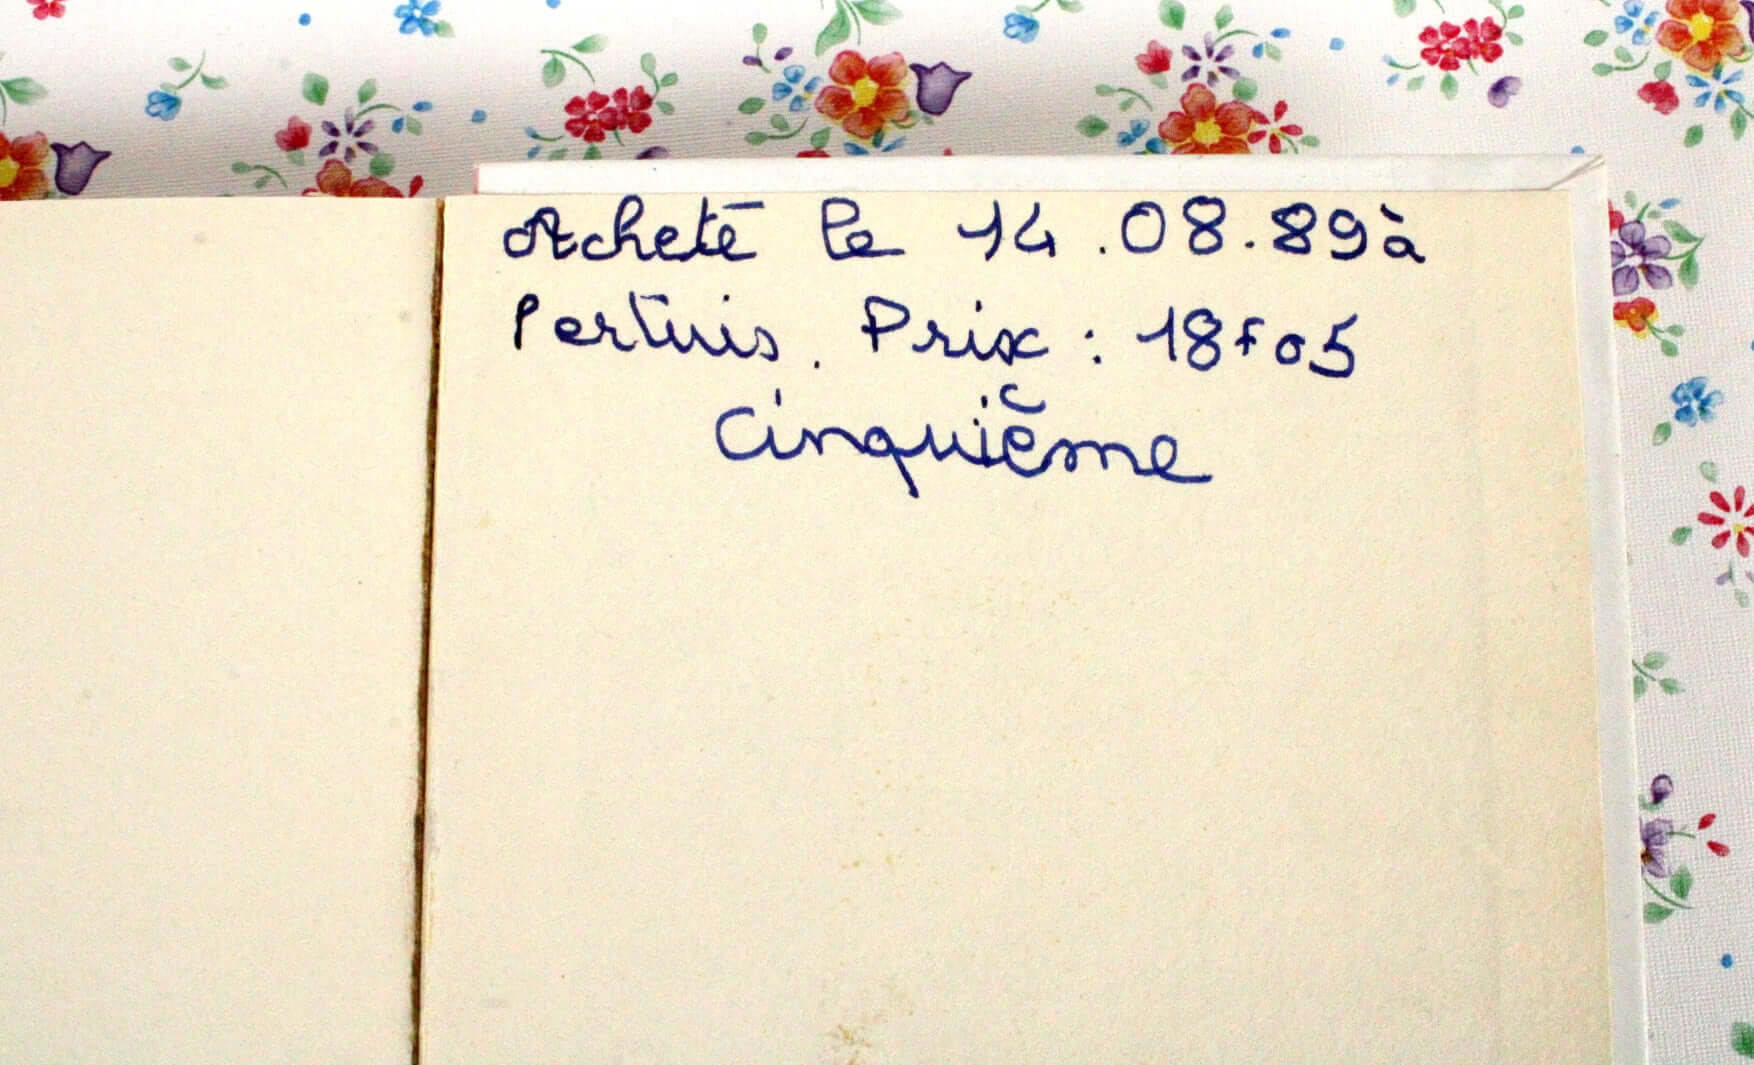 Acheté le 14.08.89 à
Pertuis. Prix : 18f05
Cinquième